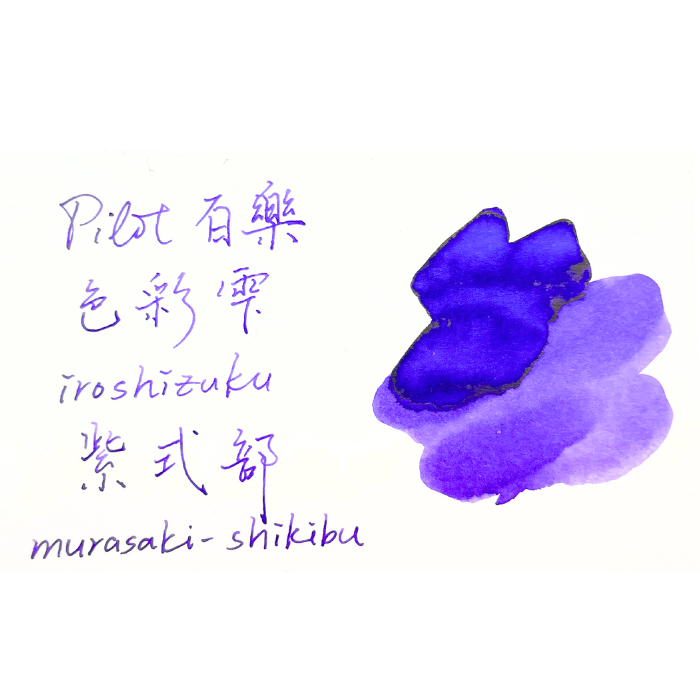 Pilot 百樂
色彩雫
iroshizuku
紫式部
murasaki-shikibu